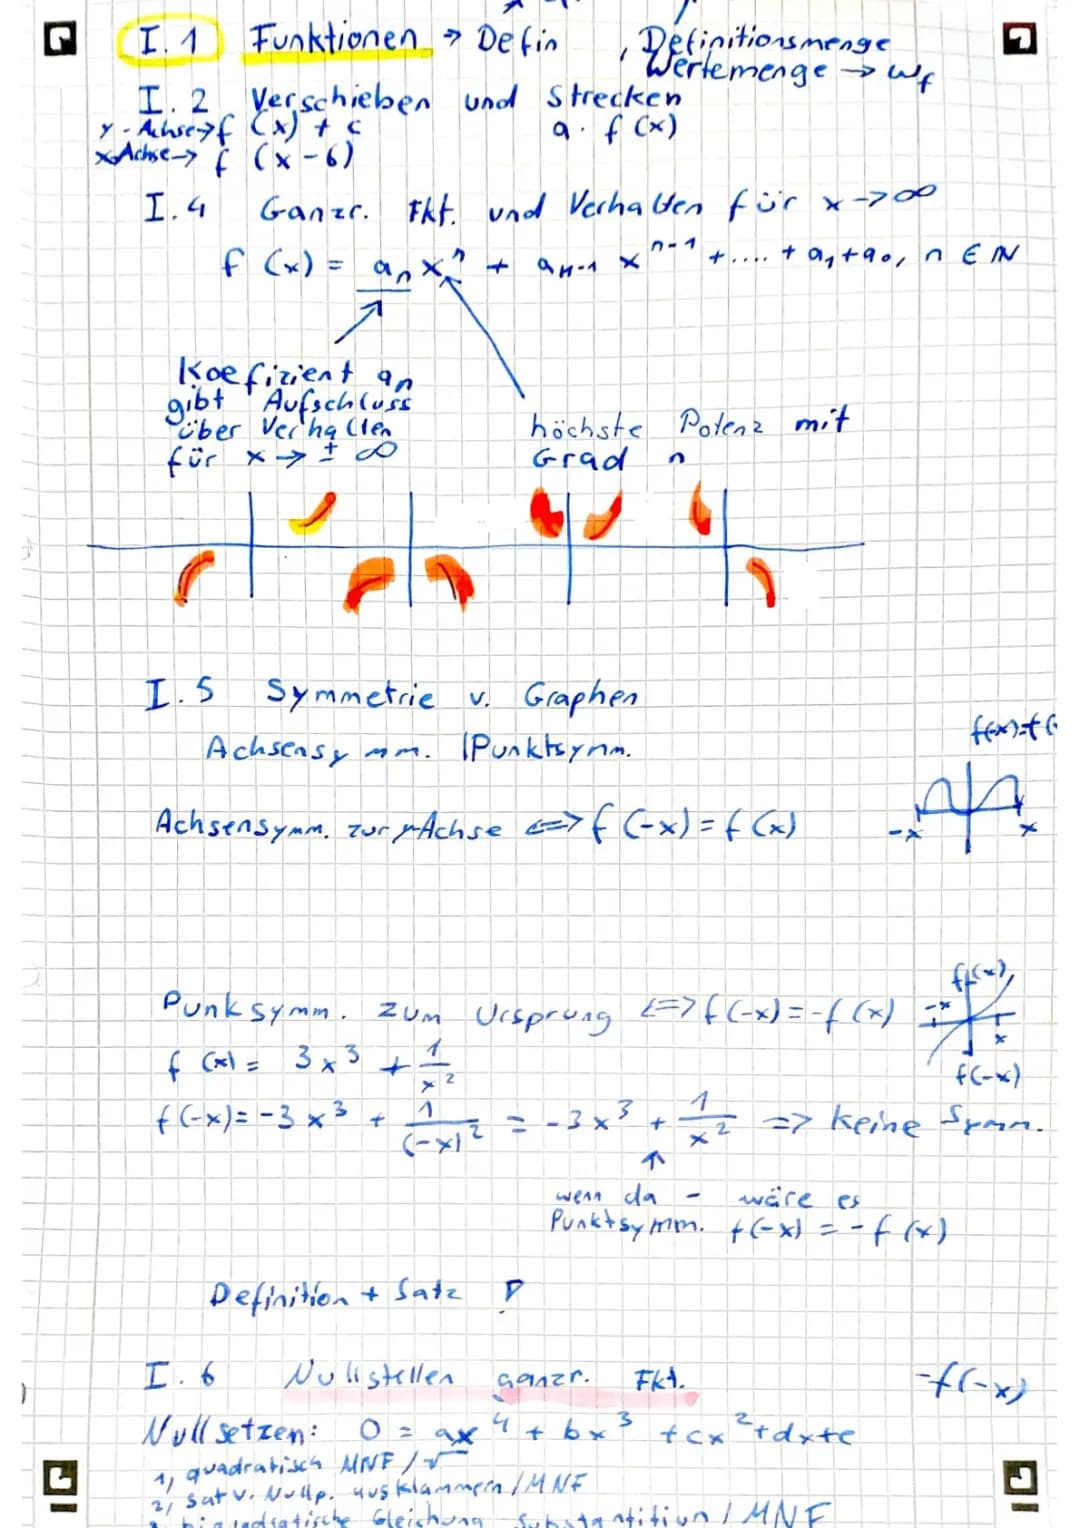 I.1 Funktionen → Defin , Definitionsmenge
Wertemenge → Wf
I.2 Verschieben und Strecken
y-Achse→ f (x) + c a · f (x)
x-Achse→ f (x-b)
I.4 Ganzr. Fkt. und Verhalten für x → ∞
f (x) = aₙ xⁿ + aₙ₋₁ xⁿ⁻¹ + .... + a₁ + a₀, n ∈ ℕ
Koefizient an
gibt Aufschluss
über Verhalten
für x → ± ∞
höchste Potenz mit
Grad n
I.5 Symmetrie v. Graphen
Achsensymm. | Punktsymm.
f(-x)=f(
Achsensymm. zur y-Achse <=> f (-x) = f (x)
-x x
Punksymm. zum Ursprung <=> f (-x) = -f (x)
f(x)
-x x
f(-x)
f (x) = 3x³ + 1/x²
f (-x) = -3x³ + 1/(-x)² = -3x³ + 1/x² => keine Symm.
↑
wenn da - wäre es
Punktsymm. f(-x) = -f (x)
Definition + Satz
I.6 Nullstellen ganzr. Fkt. -f(-x)
Nullsetzen: 0 = ax⁴ + bx³ + cx² + dx + e
1, quadratisch MNF / √
2, Satz v. Nullp. ausklammern / MNF
Gleichung Substantitiun / MNF